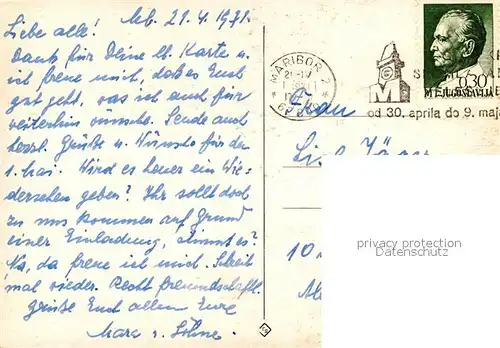 Mb. 21.4.1971.
Liebe alle!
Dank für Deine lb. Karte u.
ich freue mich, daß es Euch
gut geht, was ich auch für
weiterhin wünsche. Sende auch
herzl. Grüße u. Wünsche für den
1. Mai. Wird es heuer ein Wie-
dersehen geben? Ihr sollt doch
zu uns kommen auf Grund
einer Einladung, stimmt es?
Na, da freue ich mich. Schreib
mal wieder. Recht freundschaftl.
grüßt Euch allen Eure
Mara
MARIBOR 2
0,30
JUGOSLAVIJA
M
od 30. aprila do 9. maja
Frau
10
privacy protection
Datenschutz